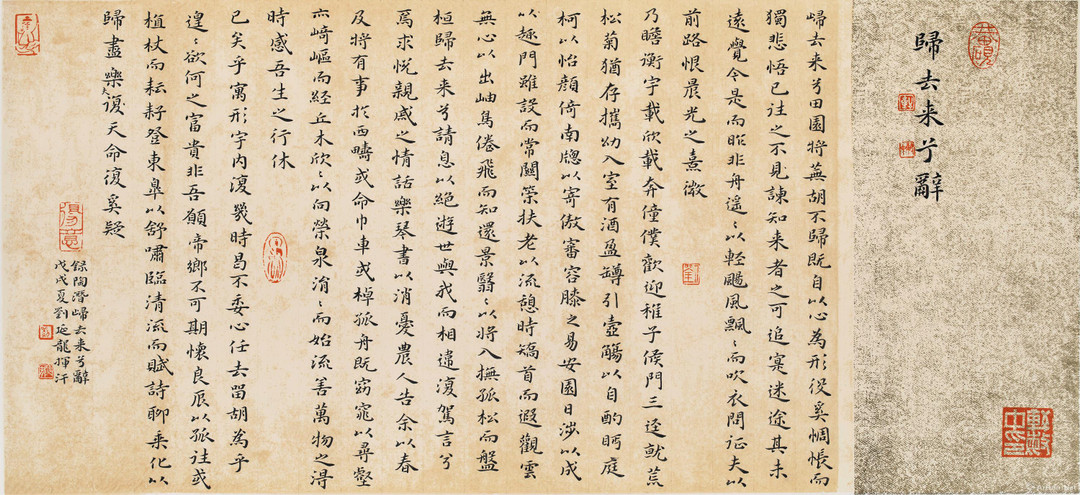 歸去来兮辭
歸去来兮田園将蕪胡不歸既自以心為形役奚惆悵而
獨悲悟已往之不見諌知来者之可追寔迷途其未
遠覺今是而昨非舟遥〻以輕颺風飄〻而吹衣問征夫以
前路恨晨光之熹微
乃瞻衡宇載欣載奔僮僕歡迎稚子候門三逕就荒
松菊猶存攜幼入室有酒盈罇引壺觴以自酌眄庭
柯以怡顔倚南牎以寄傲審容膝之易安園日涉以成
以趣門雖設而常關策扶老以流憩時矯首而遐觀雲
無心以出岫鳥倦飛而知還景翳〻以将入撫孤松而盤
桓歸去来兮請息以絶遊世與我而相遺復駕言兮
焉求悦親戚之情話樂琴書以消憂農人告余以春
及将有事於西疇或命巾車或棹孤舟既窈窕以尋壑
亦崎嶇而經丘木欣〻以向榮泉涓〻而始流善萬物之得
時感吾生之行休
已矣乎寓形宇内復幾時曷不委心任去留胡為乎
遑〻欲何之富貴非吾願帝鄉不可期懷良辰以孤往或
植杖而耘耔登東皐以舒嘯臨清流而賦詩聊乘化以
歸盡樂夫復天命復奚疑
録陶潛歸去来兮辭
戊戌夏劉延龍揮汗
得意